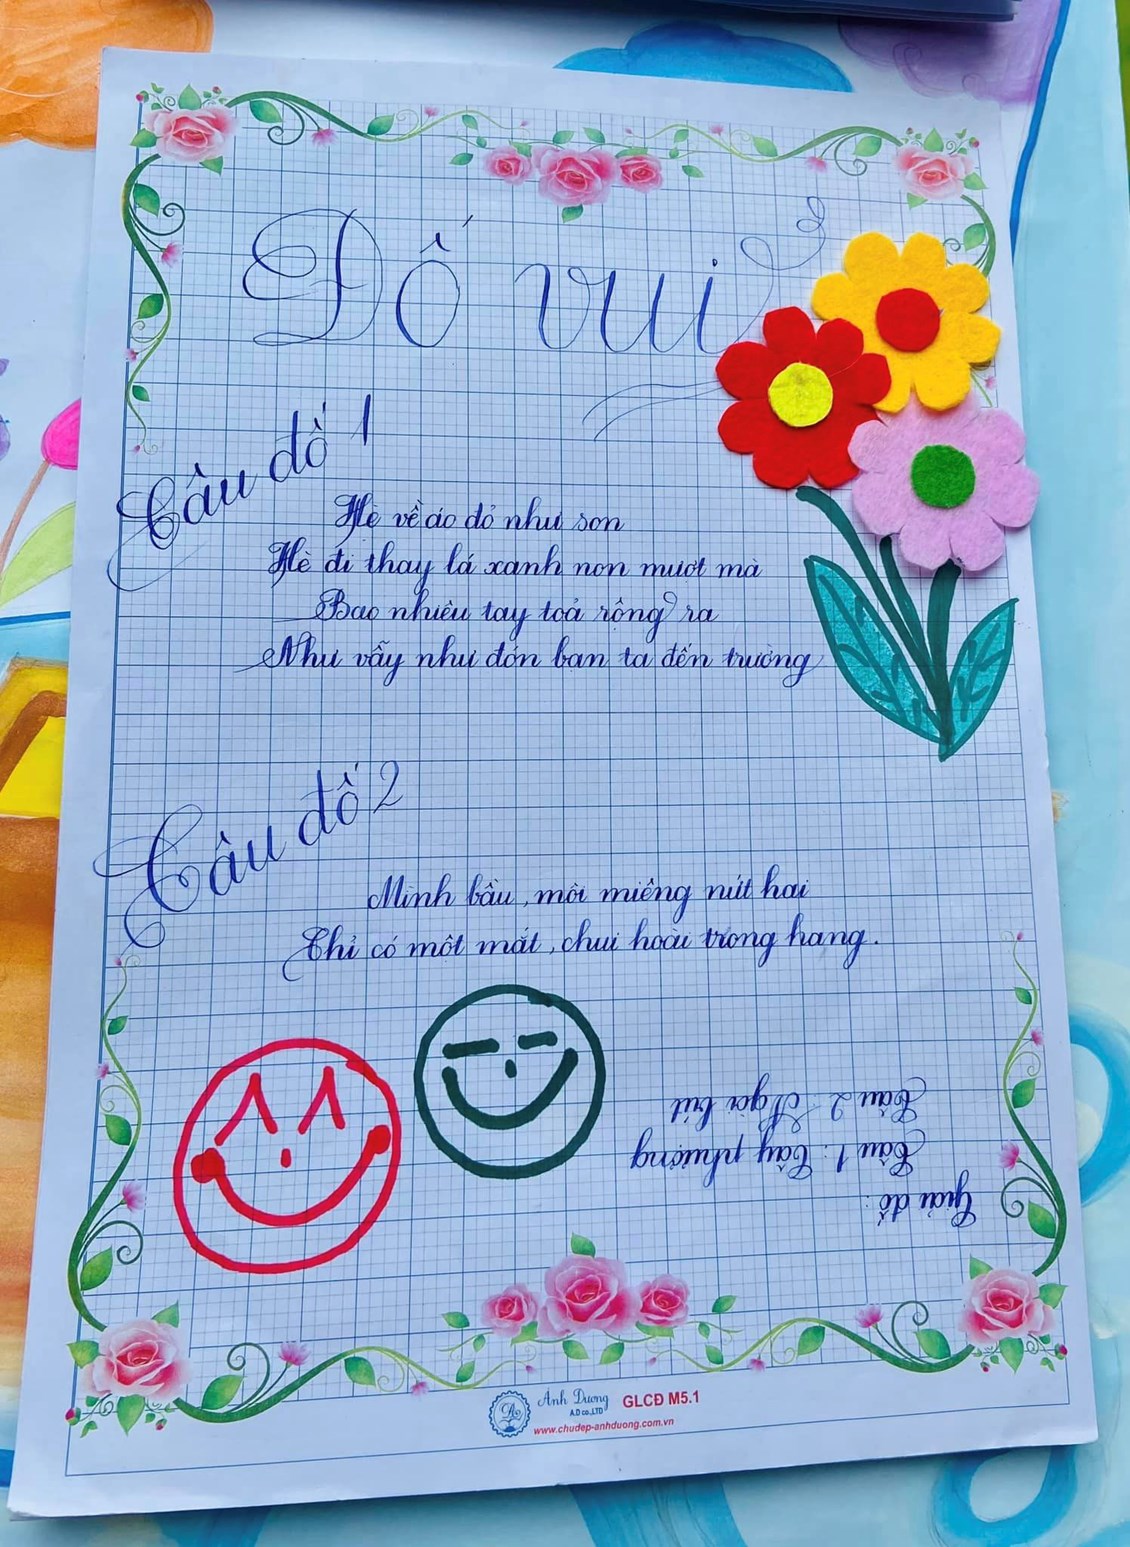 Đố vui
Câu đố 1
Hè về áo đỏ như son
Hè đi thay lá xanh non mượt mà
Bao nhiêu tay toả rộng ra
Như vẫy như đón bạn ta đến trường
Câu đố 2
Mình bầu, môi miếng nút hai
Chỉ có một mắt, chui hoài trong hang.
Giải đố:
Câu 1: Cây phượng
Câu 2: Ngòi bút
Anh Dương
A.D co.,LTD
GLCĐ M5.1
www.chudep-anhduong.com.vn